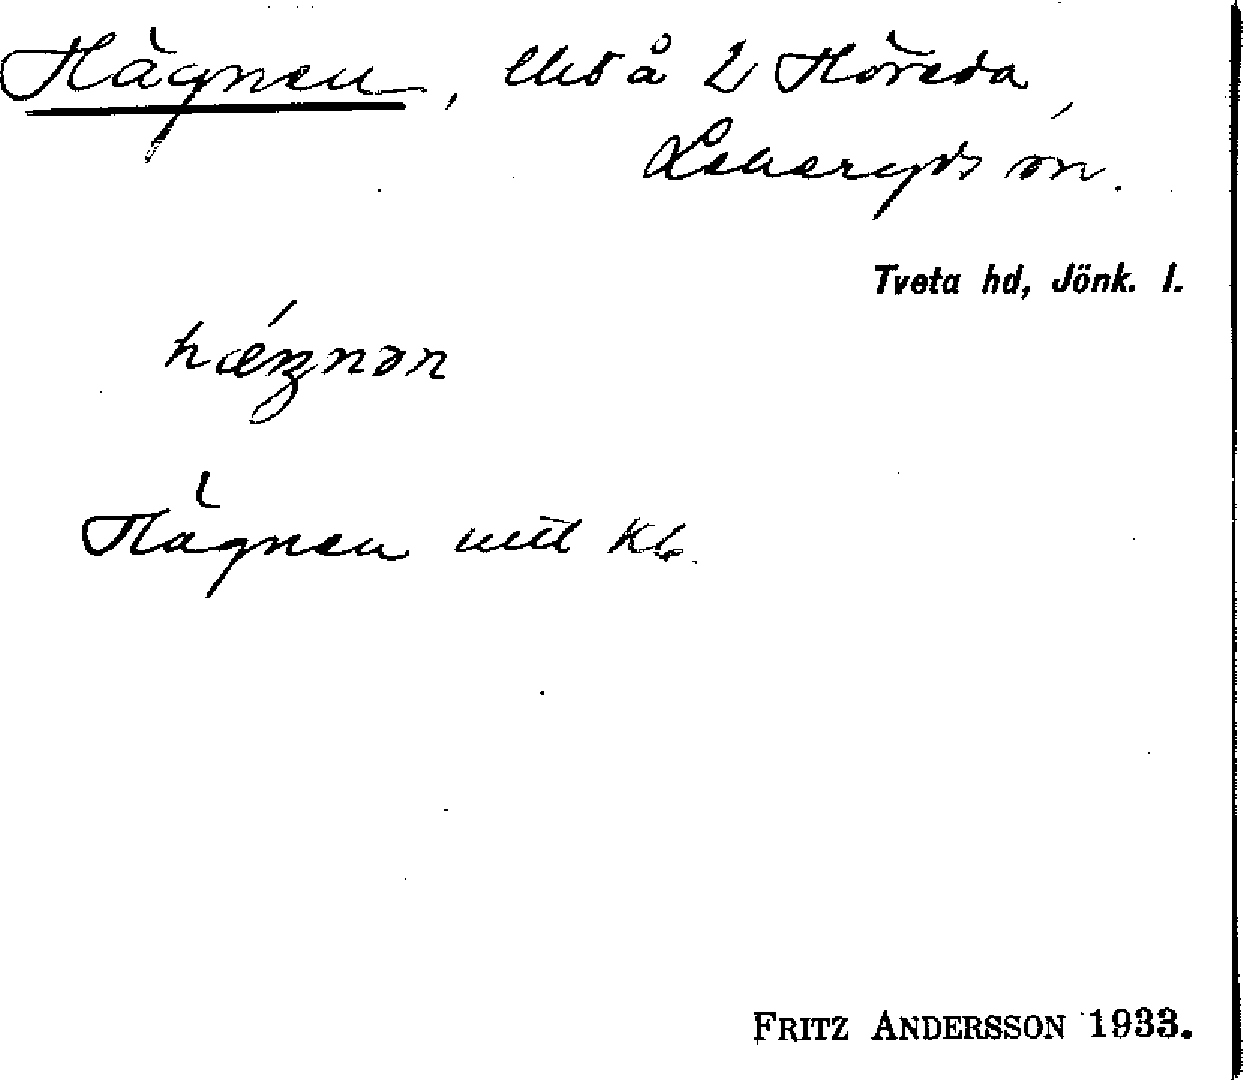 Hägnen, lhs å 2 Höreda,
Lekeryds sn.
Tveta hd, Jönk. l.
hǽŋnən
Hägnen utt Kb.
FRITZ ANDERSSON 1933.